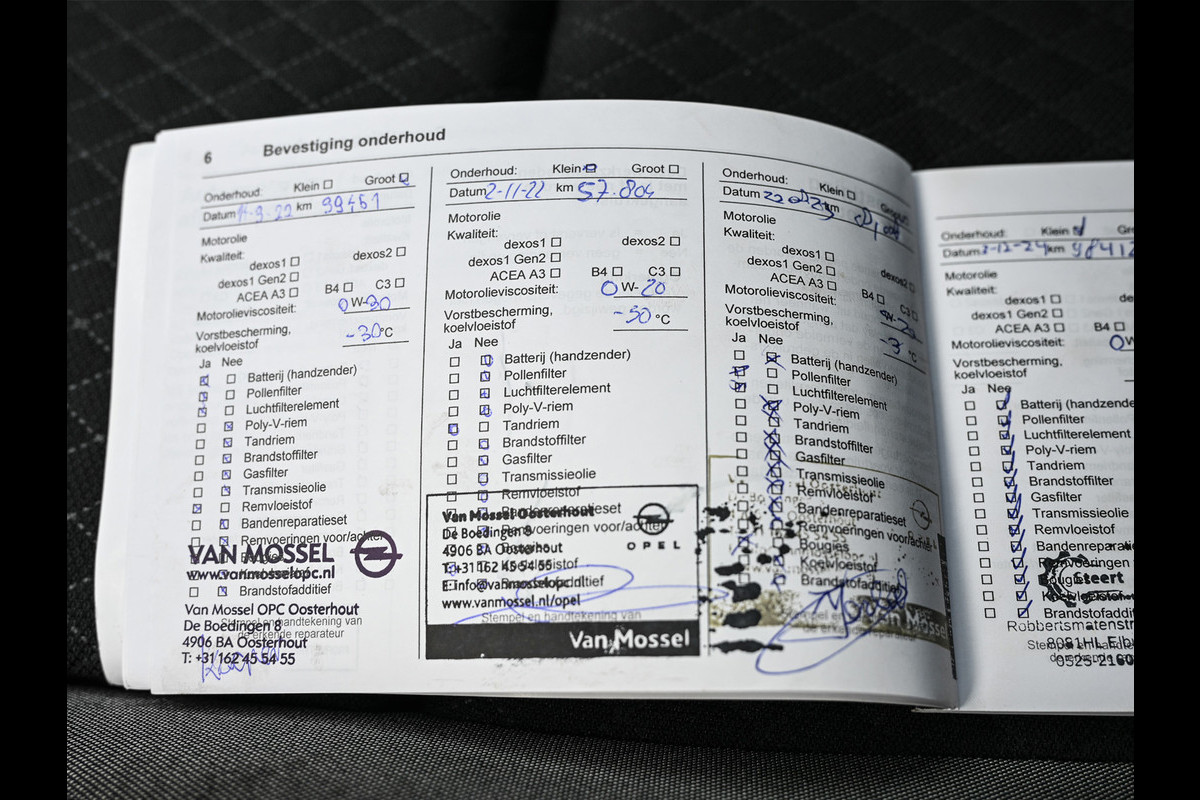 6 Bevestiging onderhoud
Onderhoud: Klein Groot
Datum km
Motorolie
Kwaliteit:
dexos1 dexos2
dexos1 Gen2
ACEA A3 B4 C3
Motorolieviscositeit: 0W-30
Vorstbescherming,
koelvloeistof -30°C
Ja Nee
Batterij (handzender)
Pollenfilter
Luchtfilterelement
Poly-V-riem
Tandriem
Brandstoffilter
Gasfilter
Transmissieolie
Remvloeistof
Bandenreparatieset
Remvoeringen voor/achter
VAN MOSSEL
www.vanmosselopc.nl
Brandstofadditief
Van Mossel OPC Oosterhout
Stempel en handtekening van
De Boedingen 8
de erkende reparateur
4906 BA Oosterhout
T: +31 162 45 54 55
Onderhoud: Klein Groot
Datum 2-11-22 km 57.804
Motorolie
Kwaliteit:
dexos1 dexos2
dexos1 Gen2
ACEA A3 B4 C3
Motorolieviscositeit: 0W-20
Vorstbescherming,
koelvloeistof -30°C
Ja Nee
Batterij (handzender)
Pollenfilter
Luchtfilterelement
Poly-V-riem
Tandriem
Brandstoffilter
Gasfilter
Transmissieolie
Remvloeistof
Bandenreparatieset
Van Mossel Oosterhout
Remvoeringen voor/achter
De Boedingen 8
4906 BA Oosterhout
T: +31 162 45 54 55
E: info@vanmosselopc.nl
www.vanmossel.nl/opel
OPEL
Stempel en handtekening van
Van Mossel
Onderhoud: Klein Groot
Datum km
Motorolie
Kwaliteit:
dexos1 dexos2
dexos1 Gen2
ACEA A3 B4 C3
Motorolieviscositeit:
Vorstbescherming,
koelvloeistof °C
Ja Nee
Batterij (handzender)
Pollenfilter
Luchtfilterelement
Poly-V-riem
Tandriem
Brandstoffilter
Gasfilter
Transmissieolie
Remvloeistof
Bandenreparatieset
Remvoeringen voor/achter
Bougies
Koelvloeistof
Brandstofadditief
Van Mossel
Onderhoud: Klein Gr
Datum 2-12-24 km 98412
Motorolie
Kwaliteit:
dexos1
dexos1 Gen2
ACEA A3 B4
Motorolieviscositeit: 0W
Vorstbescherming,
koelvloeistof
Ja Nee
Batterij (handzende
Pollenfilter
Luchtfilterelement
Poly-V-riem
Tandriem
Brandstoffilter
Gasfilter
Transmissieolie
Remvloeistof
Bandenreparatie
Remvoeringen
Bougies
Steert
Koelvloeistof
Brandstofadditi
Robbertsmatenstr
8081HL Elbu
0525-2160